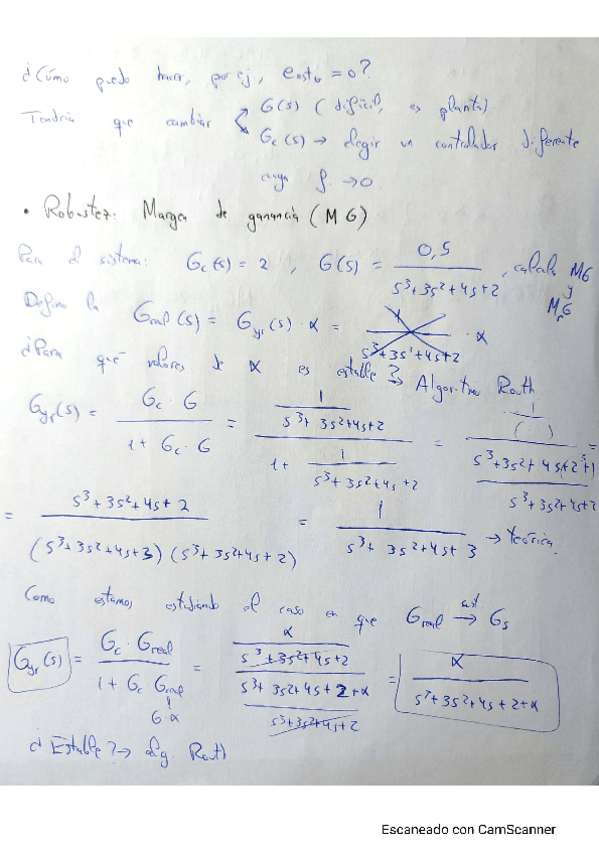 ¿Cómo puedo hacer, por ej., e_est = 0?
Tendría que cambiar < G(s) (difícil, es planta)
G_c(s) → elegir un controlador diferente
cuya → 0
• Robustez: Margen de ganancia (MG)
Para el sistema: G_c(s) = 2, G(s) = 0,5 / (s³+3s²+4s+2), calcula MG y
Defino la G_real(s) = G_yr(s) · α = 1 / (s³+3s²+4s+2) · α
¿Para qué valores de α es estable? → Algoritmo Routh
G_yr(s) = (G_c · G) / (1 + G_c · G) = (1 / (s³+3s²+4s+2)) / (1 + 1 / (s³+3s²+4s+2)) = (1 / ( · )) / ((s³+3s²+4s+2+1) / (s³+3s²+4s+2)) =
= (s³+3s²+4s+2) / ((s³+3s²+4s+3)(s³+3s²+4s+2)) = 1 / (s³+3s²+4s+3) → teórica.
Como estamos estudiando el caso en que G_real → G_s
G_yr(s) = (G_c · G_real) / (1 + G_c G_real) = (α / (s³+3s²+4s+2)) / ((s³+3s²+4s+2+α) / (s³+3s²+4s+2)) = α / (s³+3s²+4s+2+α)
G·α
¿Estable? → Alg. Routh
Escaneado con CamScanner